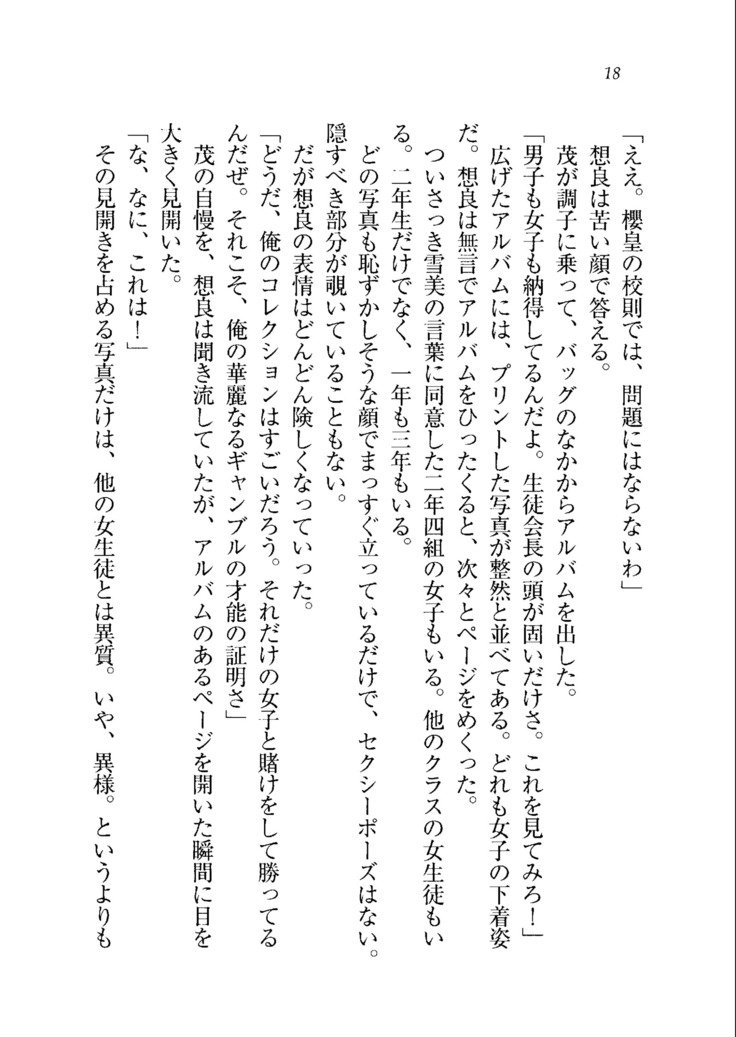 18
「ええ。櫻皇の校則では、問題にはならないわ」
想良は苦い顔で答える。
茂が調子に乗って、バッグのなかからアルバムを出した。
「男子も女子も納得してるんだよ。生徒会長の頭が固いだけさ。これを見てみろ！」
広げたアルバムには、プリントした写真が整然と並べてある。どれも女子の下着姿
だ。想良は無言でアルバムをひったくると、次々とページをめくった。
ついさっき雪美の言葉に同意した二年四組の女子もいる。他のクラスの女生徒もい
る。二年生だけでなく、一年も三年もいる。
どの写真も恥ずかしそうな顔でまっすぐ立っているだけで、セクシーポーズはない。
隠すべき部分が覗いていることもない。
だが想良の表情はどんどん険しくなっていった。
「どうだ、俺のコレクションはすごいだろう。それだけの女子と賭けをして勝ってる
んだぜ。それこそ、俺の華麗なるギャンブルの才能の証明さ」
茂の自慢を、想良は聞き流していたが、アルバムのあるページを開いた瞬間に目を
大きく見開いた。
「な、なに、これは！」
その見開きを占める写真だけは、他の女生徒とは異質。いや、異様。というよりも